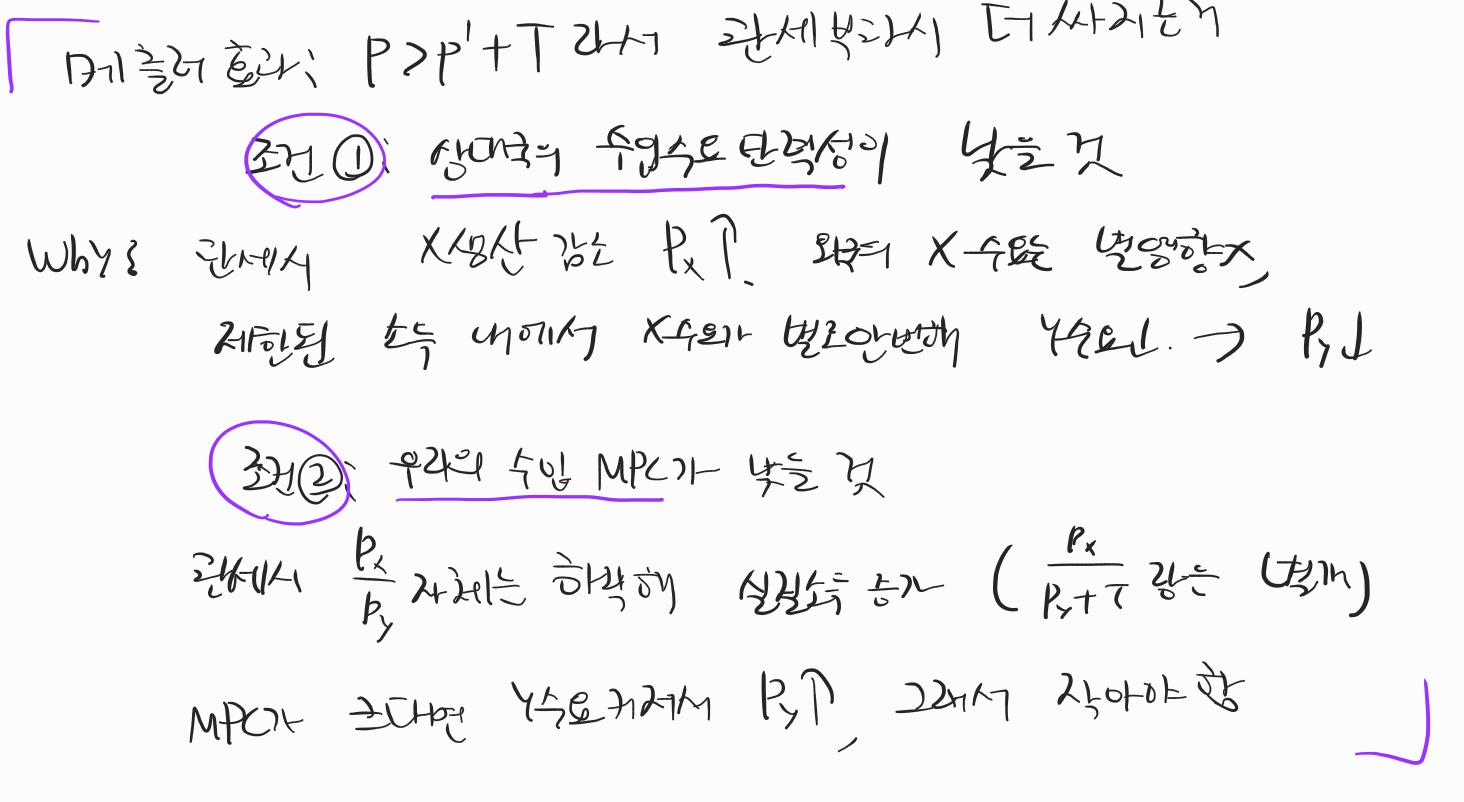 메츨러 효과: P>P'+T 라서 관세부과시 더 싸지는거
조건①: 상대국의 수입수요 탄력성이 낮을 것
Why? 관세시 X생산 감소 Px↑. 외국의 X수요는 별영향x,
제한된 소득 내에서 X수요가 별로안변해 Y수요↓. → Py↓
조건②: 우리의 수입 MPC가 낮을 것
관세시 Px/Py 자체는 하락해 실질소득 증가 (Px/Py+T 랑은 별개)
MPC가 크다면 Y수요커져서 Py↑, 그래서 작아야 함